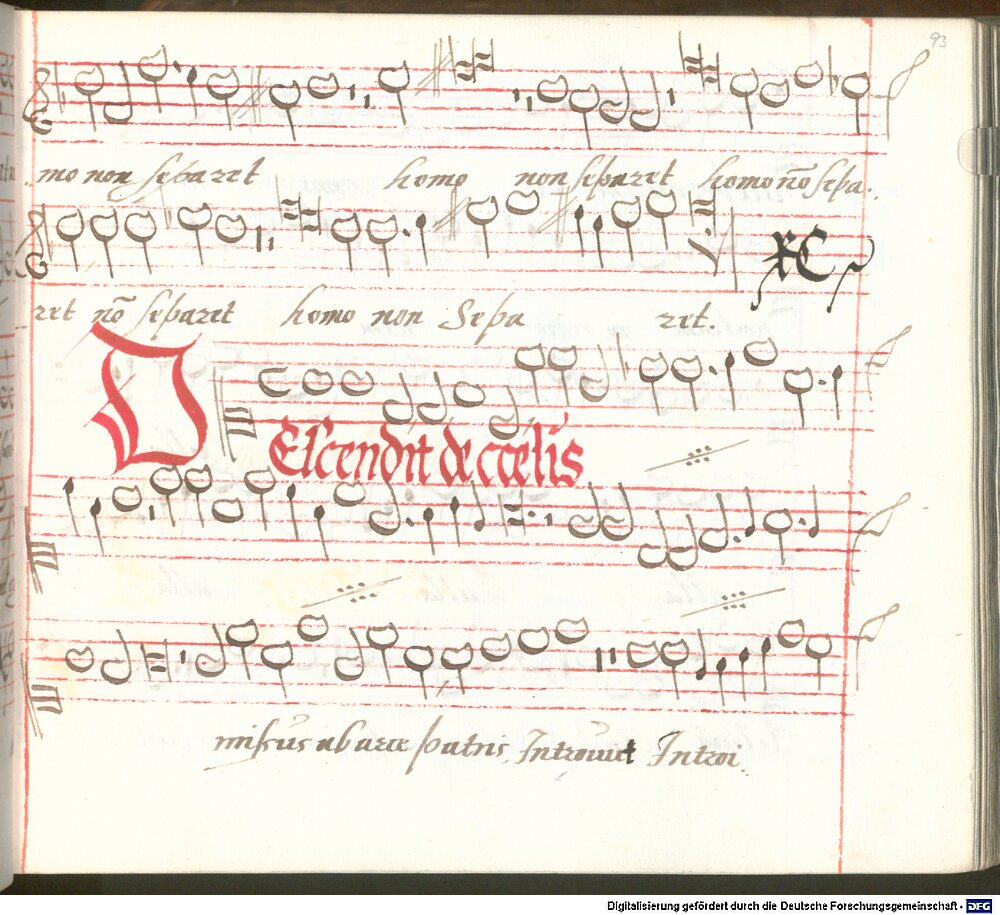 93
mo non separet homo non separet homo nõ sepa.
ret nõ separet homo non Sepa ret.
DEscendit de cœlis
missus ab arce patris, Introuiet Introi
Digitalisierung gefördert durch die Deutsche Forschungsgemeinschaft - DFG